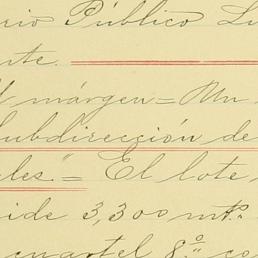 rio Público Lu
rte.
l márgen = Un
Subdirección de
les." = El lote
ide 3,300 mts.
cuartel 8º co